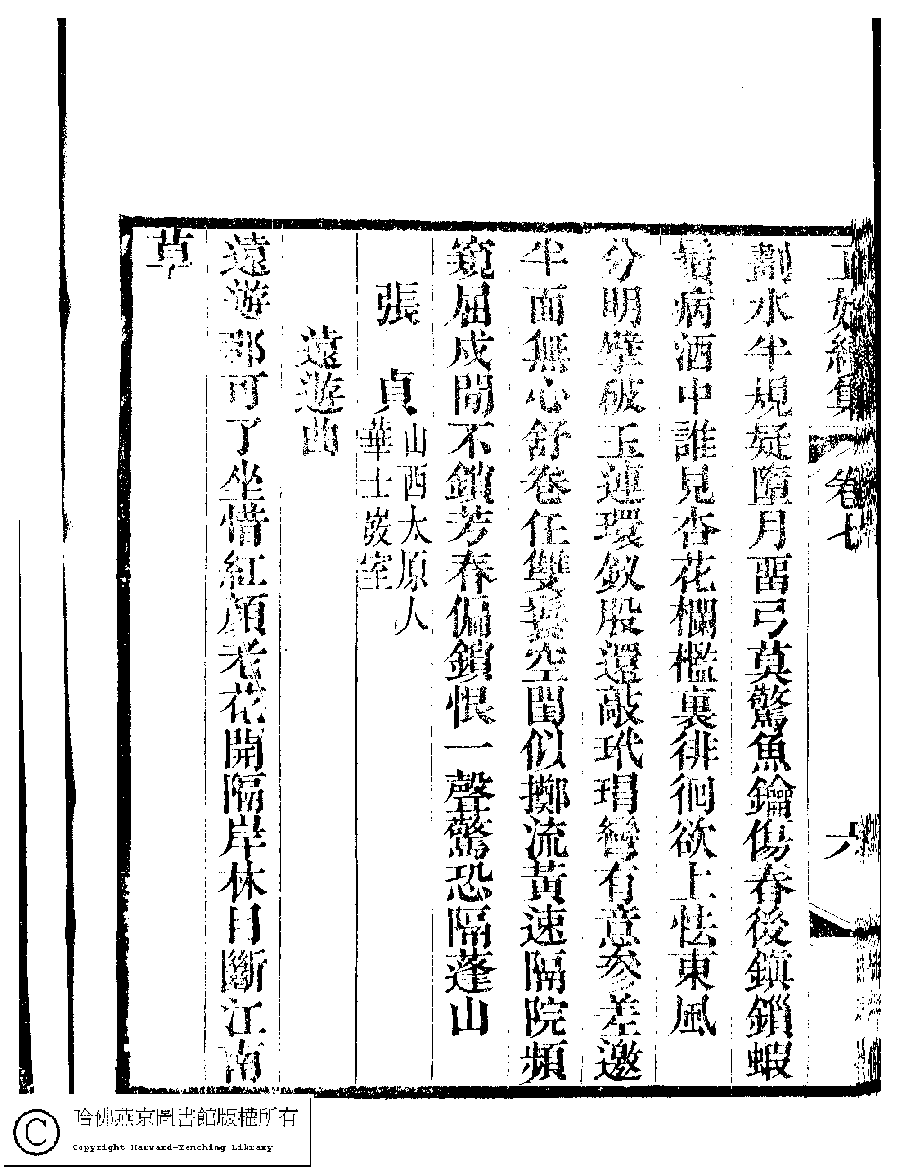 正始續集 卷七 六
劃水半規疑墮月畱弓莫驚魚鑰傷春後鎮鎖蝦
鬚病酒中誰見杏花欄檻裏徘徊欲上怯東風
分明擘破玉連環釵股還敲玳瑁彎有意參差邀
半面無心舒卷任雙鬟空閨似擲流黃速隔院頻
窺屈戍閒不鎖芳春偏鎖恨一聲驚恐隔蓬山
張 貞 山西太原人
華士嶔室
遠遊曲
遠遊那可了坐惜紅顏老花開隔岸休目斷江南
草
哈佛燕京圖書館版權所有
Copyright Harvard-Yenching Library